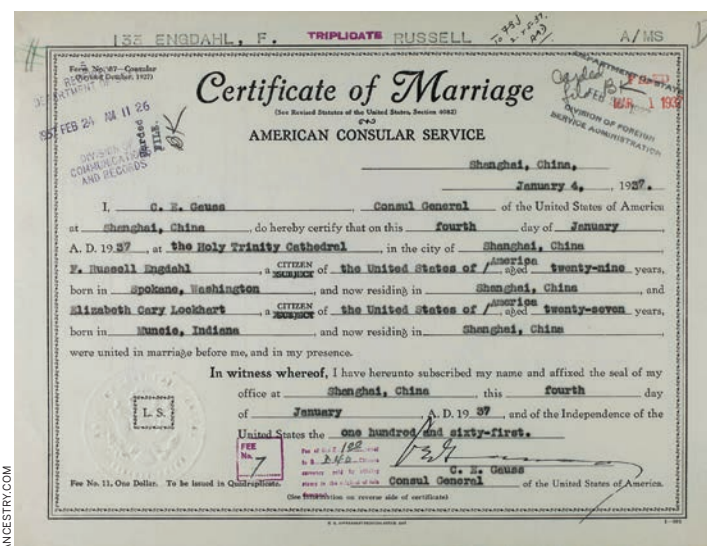 133 ENGDAHL, F. TRIPLICATE RUSSELL A/MS
Form No. 87—Consular
(Revised October, 1927)
Certificate of Marriage
(See Revised Statutes of the United States, Section 4082)
AMERICAN CONSULAR SERVICE
1937 FEB 24 AM 11 26
DIVISION OF
COMMUNICATIONS
AND RECORDS
Carded
FILE.
BK
DEPARTMENT OF STATE
FILED
MAR 1 1937
DIVISION OF FOREIGN
SERVICE ADMINISTRATION
Shanghai, China,
January 4, , 1937.
I, C. E. Gauss , Consul General of the United States of America
at Shanghai, China , do hereby certify that on this fourth day of January ,
A. D. 1937 , at the Holy Trinity Cathedral , in the city of Shanghai, China
F. Russell Engdahl , a CITIZEN SUBJECT of the United States of / America aged twenty-nine years,
born in Spokane, Washington , and now residing in Shanghai, China , and
Elizabeth Cary Lockhart , a CITIZEN SUBJECT of the United States of / America aged twenty-seven years,
born in Muncie, Indiana , and now residing in Shanghai, China
were united in marriage before me, and in my presence.
In witness whereof, I have hereunto subscribed my name and affixed the seal of my
office at Shanghai, China this fourth day
of January , A. D. 1937 , and of the Independence of the
United States the one hundred and sixty-first.
L. S.
FEE
No.
7
C. E. Gauss
Consul General of the United States of America.
Fee No. 11, One Dollar. To be issued in Quadruplicate.
(See instruction on reverse side of certificate)
ANCESTRY.COM